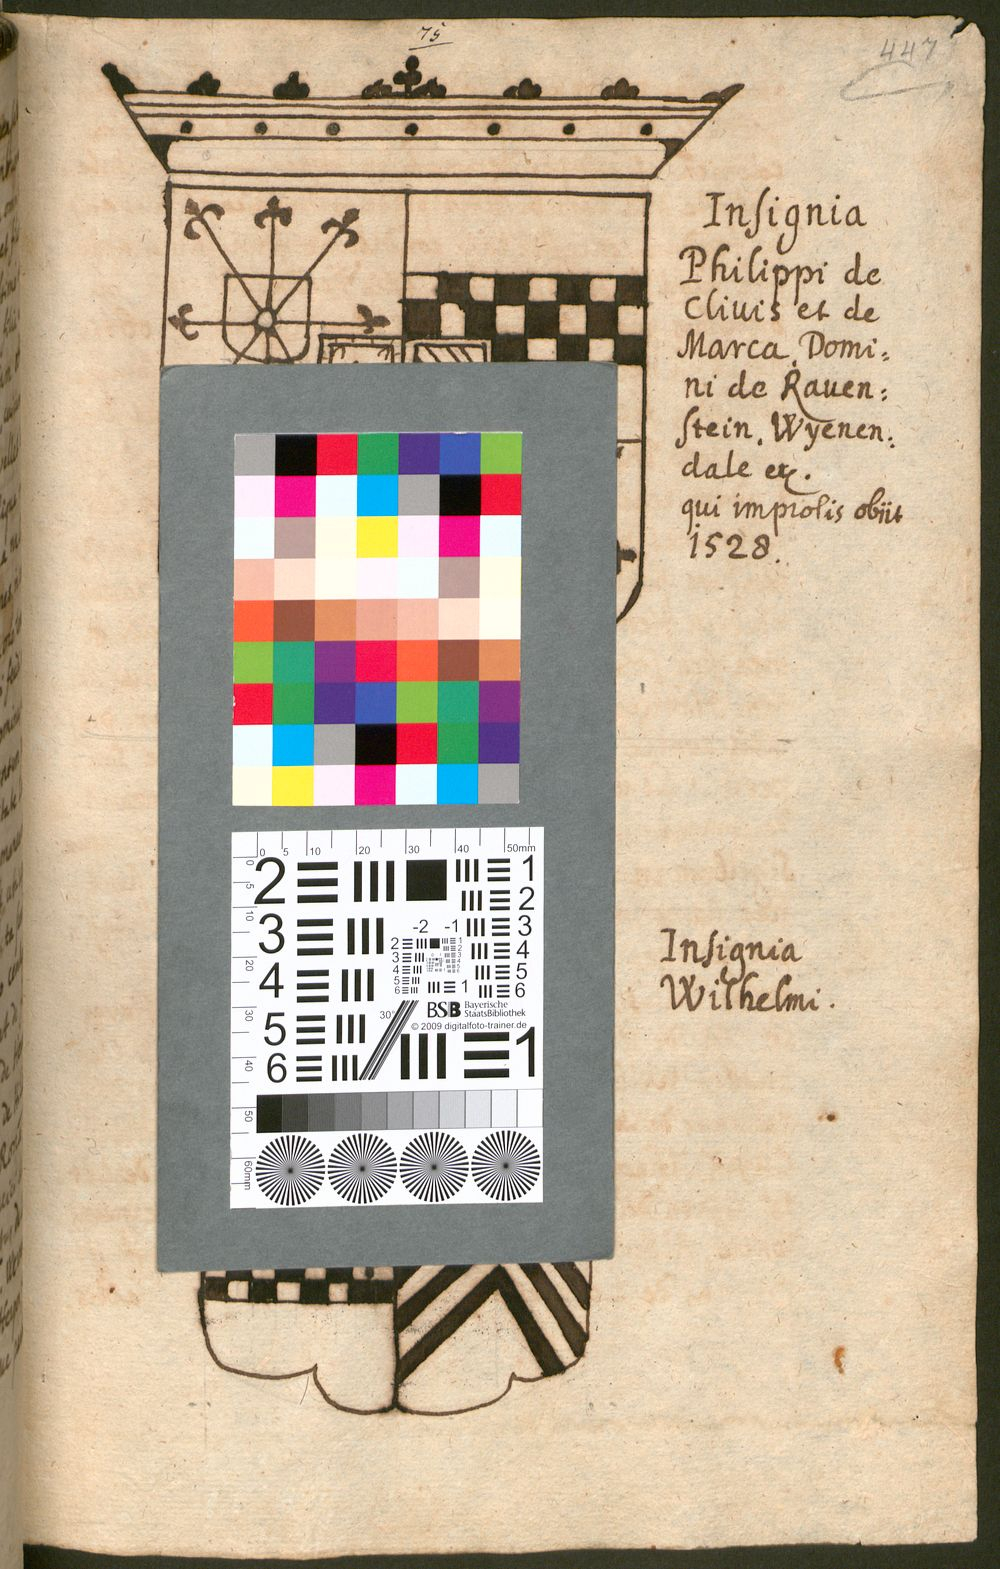 75
447
Insignia
Philippi de
Cliuis et de
Marca, Domi:
ni de Rauen:
stein, Wyenen:
dale etc.
qui improlis obiit
1528.
0 5 10 20 30 40 50mm
0 5 10 20 30 40 50 60mm
2 1
2
3 -2 -1 3
2 1
3 2
4 3
5 4
6 5
6
1
4 4
5
6
30°
BSB Bayerische
StaatsBibliothek
© 2009 digitalfoto-trainer.de
5 1
6
Insignia
Wilhelmi.